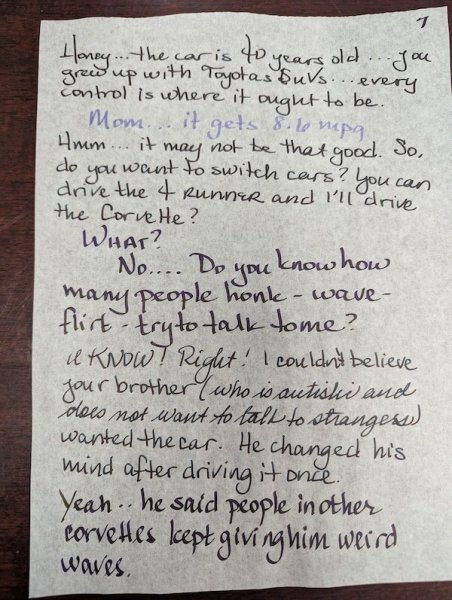 7
Honey...the car is 40 years old ... you
grew up with Toyotas SUVs...every
control is where it ought to be.
Mom... it gets 8.6 mpg
Hmm... it may not be that good. So,
do you want to switch cars? You can
drive the 4 RUNNER and I'll drive
the Corvette?
WHAT?
No.... Do you know how
many people honk - wave -
flirt - try to talk to me?
I KNOW! Right! I couldn't believe
your brother (who is autistic and
does not want to talk to strangers)
wanted the car. He changed his
mind after driving it once.
Yeah.. he said people in other
corvettes kept giving him weird
waves.